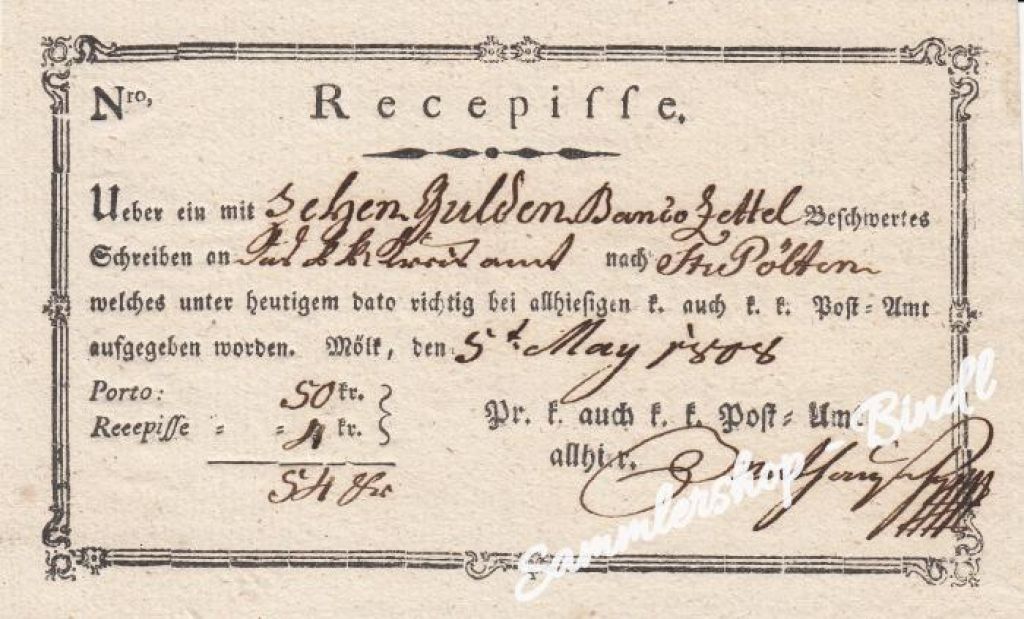 Nro, Recepiſſe.
Ueber ein mit Zehen Gulden Banco Zettel Beſchwertes
Schreiben an Das k k Kreisamt nach St. Pölten
welches unter heutigem dato richtig bei allhieſigen k. auch k. k. Poſt-Amt
aufgegeben worden. Mölk, den 5t May 1808
Porto: 50 kr.
Receepiſſe - - 4 kr.
54 kr
Pr. k. auch k. k. Poſt-Amt
allhier.
Sammlershop - Bindl